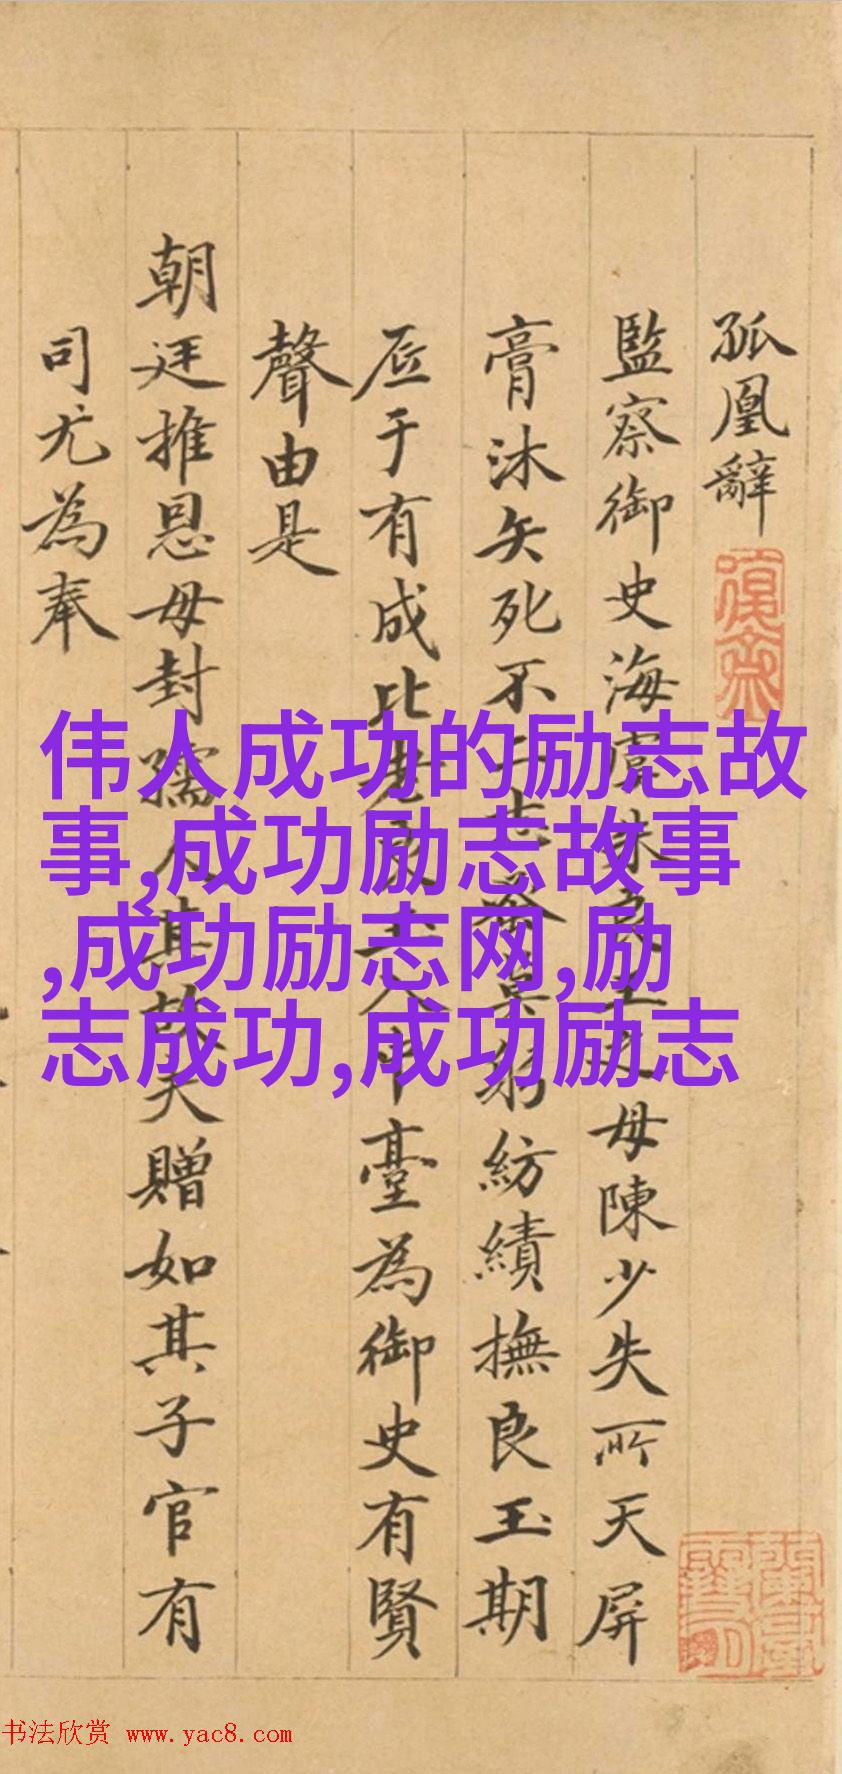 孤凰辭
監察御史海虞朱良玉之母陳少失所天屏
膏沐矢死不二志
紡績撫良玉期
底于有成比
臺為御史有賢
聲由是
朝廷推恩母封孺人其故夫贈如其子官有
司尤為奉
伟人成功的励志故
事,成功励志故事
,成功励志网,励
志成功,成功励志
书法欣赏 www.yac8.com